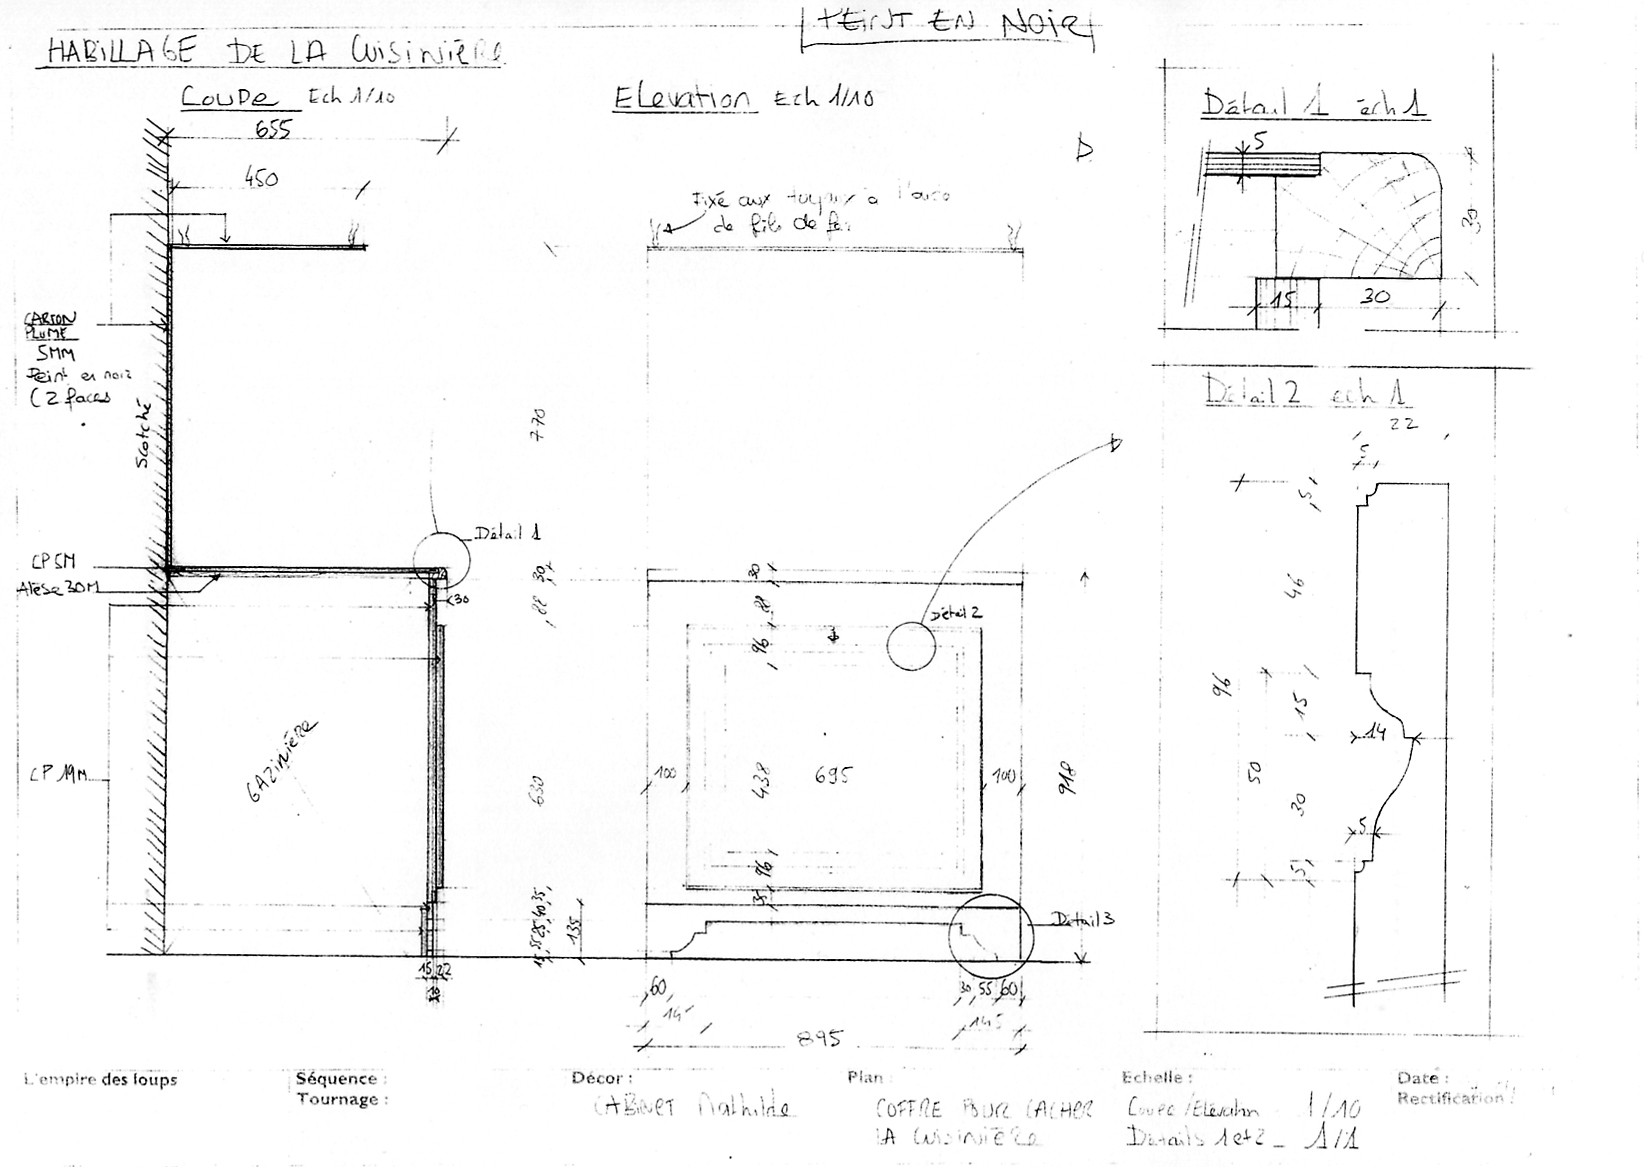 PEINT EN NOIR
HABILLAGE DE LA CUISINIÈRE
COUPE Ech 1/10
ELEVATION Ech 1/10
Détail 1 éch 1
655
450
5
30
15
30
Fixé aux tuyaux à l'aide
de fils de fer
CARTON
PLUME
5MM
Peint en noir
(2 faces
Scotché
770
Détail 2 ech 1
22
5
5
46
96
15
14
50
30
5
5
Détail 1
CP 5M
Alèse 30M
30
30
88
30
88
96
Détail 2
GAZINIÈRE
CP 19M
630
100
438
695
100
918
96
35
135
Détail 3
15
22
60
145
30
55
60
145
895
L'empire des loups
Séquence :
Tournage :
Décor :
CABINET Mathilde
Plan
COFFRE POUR CACHER
LA CUISINIÈRE
Echelle :
Coupe/Elevation 1/10
Details 1 et 2 _ 1/1
Date :
Rectification :